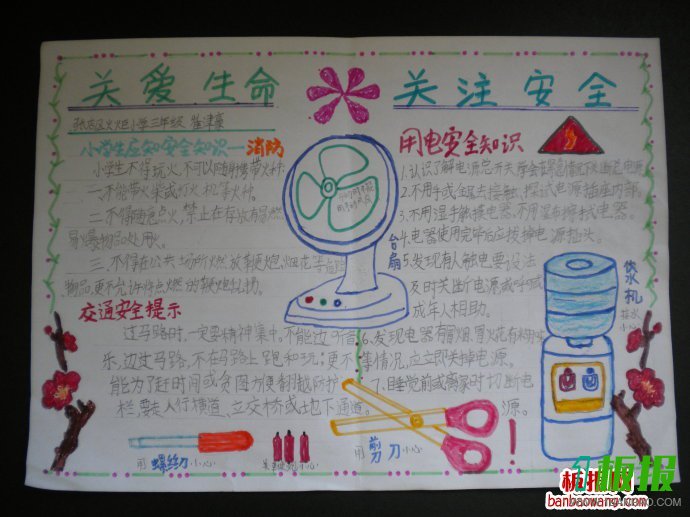 关爱生命 关注安全
张店区火炬小学三年级
小学生应知安全知识—消防
小学生不得玩火,不可以随身携带火种
一.不能带火柴或打火机等火种
二.不得随意点火,禁止在存放易燃
易爆物品处用火。
三.不得在公共场所燃放鞭炮.烟花等
物品,更不允许将点燃的鞭炮乱扔。
交通安全提示
过马路时,一定要精神集中,不能边听音
乐,边过马路,不在马路上跑和玩;更不
能为了赶时间或贪图方便翻越防护
栏要走人行横道、立交桥或地下通道。
台扇
用电安全知识
1.认识了解电源总开关,学会在紧急情况下关断总电源
2.不用手或金属去接触、探试电源插座内部。
3.不用湿手触摸电器,不用湿布擦拭电器。
4.电器使用完毕后应拔掉电源插头。
5.发现有人触电要设法
及时关断电源或呼喊
成年人相助。
6、发现电器有冒烟、冒火花
等情况,应立即关掉电源。
7、睡觉前或离家时切断电
源。
饮水机
接水
小心
用螺丝刀小心
小心
用剪刀小心
板报
banbaowang.com